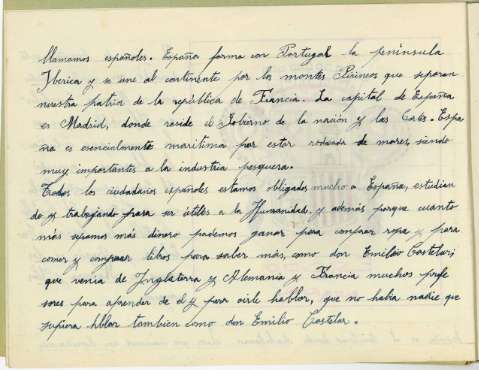 llamamos españoles. España forma con Portugal la península
Yberica y se une al continente por los montes Pirineos que separan
nuestra patria de la república de Francia. La capital de España
es Madrid, donde reside el Gobierno de la nación y las Cortes. Espa
ña es esencialmente marítima por estar rodeada de mares, siendo
muy importantes a la industria pesquera.
Todos los ciudadanos españoles estamos obligados mucho a España, estudian
do y trabajando para ser útiles a la Humanidad, y además porque cuanto
más sepamos más dinero podemos ganar para comprar ropa y para
comer y comprar libros para saber más, como don Emilio Castelar,
que venia de Inglaterra y Alemania y Francia muchos profe
sores para aprender de él y para oirle hablar, que no había nadie que
supiera hblar tambien como don Emilio Castelar.